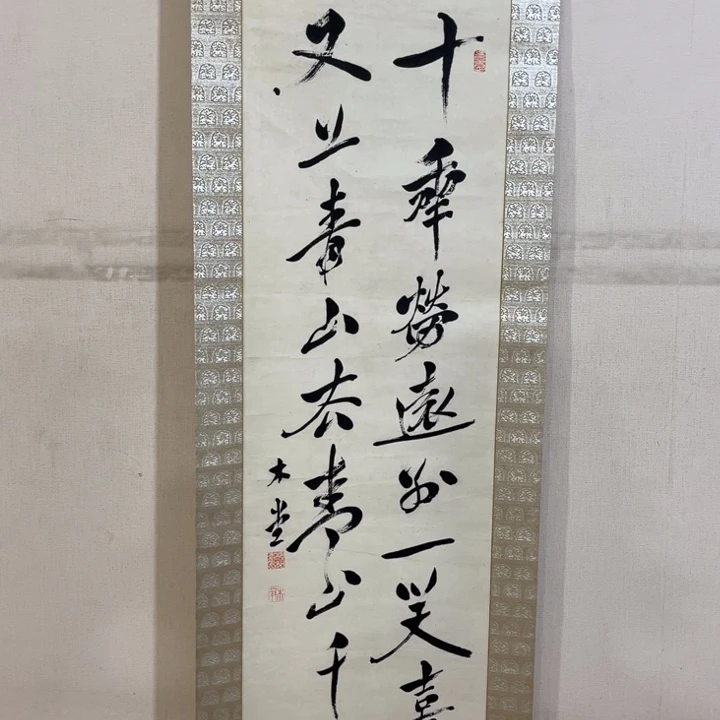 十年勞遠別一笑喜
又上青山去青山千
木堂